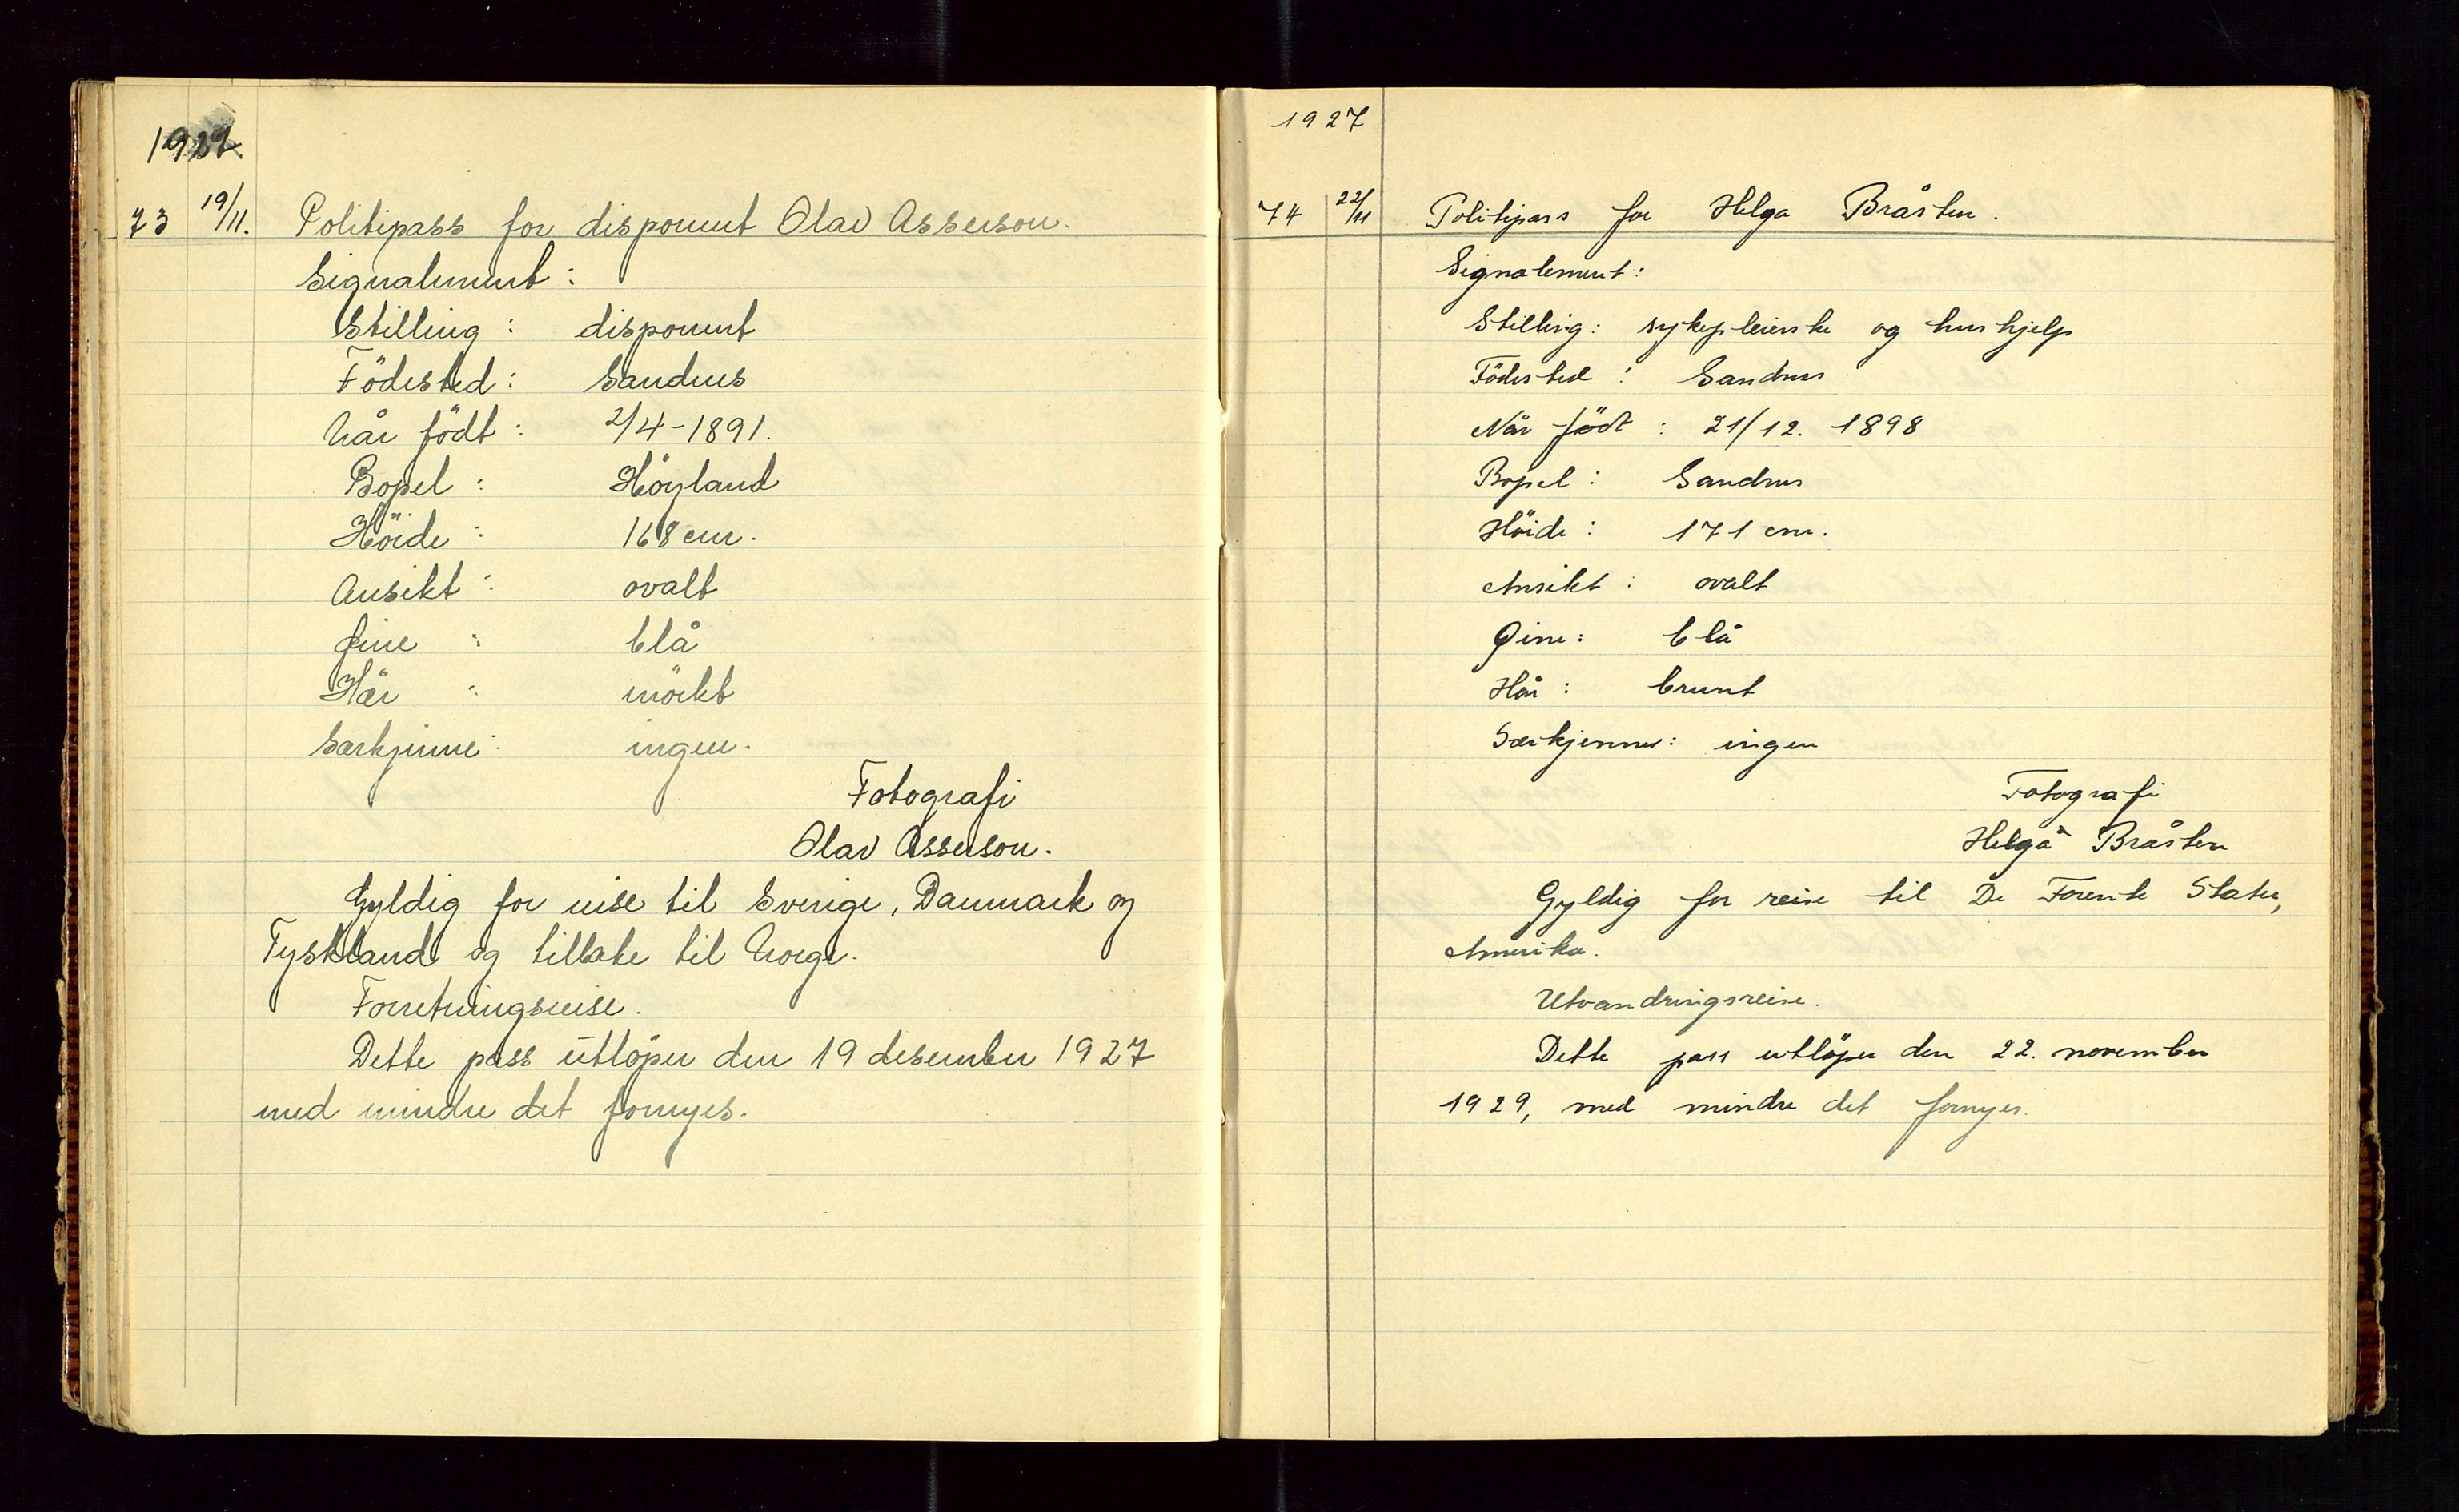 1927
73 19/11. Politipass for disponent Olav Asserson.
Signalement:
Stilling: disponent
Födested: Sandnes
Når födt: 2/4-1891.
Bopel: Höyland
Höide: 168 cm.
Ansikt: ovalt
Øine: blå
Hår: mörkt
Særkjenne: ingen.
Fotografi
Olav Asserson.
Gyldig for reise til Sverige, Danmark og
Tyskland og tilbake til Norge.
Forretningsreise.
Dette pass utløper den 19 desember 1927
med mindre det fornyes.
1927
74 22/11 Politipass for Helga Bråsten.
Signalement:
Stilling: sykepleierske og hushjelp
Födested: Sandnes
Når födt: 21/12. 1898
Bopel: Sandnes
Höide: 171 cm.
Ansikt: ovalt
Øine: blå
Hår: brunt
Særkjenner: ingen
Fotografi
Helga Bråsten
Gyldig for reise til De Forente Stater,
Amerika.
Utvandringsreise.
Dette pass utlöper den 22. november
1929, med mindre det fornyes.